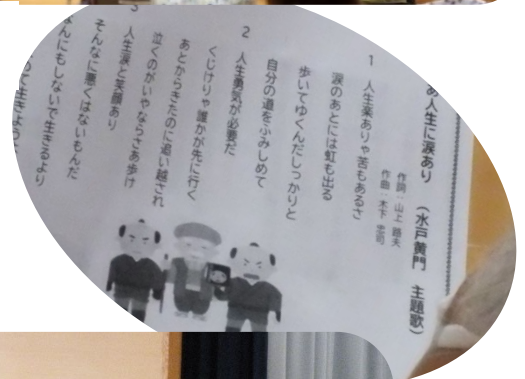 あ人生に涙あり （水戸黄門 主題歌）
作詞：山上 路夫
作曲：木下 忠司
1 人生楽ありゃ苦もあるさ
涙のあとには虹も出る
歩いてゆくんだしっかりと
自分の道をふみしめて
2 人生勇気が必要だ
くじけりゃ誰かが先に行く
あとからきたのに追い越され
泣くのがいやならさあ歩け
3 人生涙と笑顔あり
そんなに悪くはないもんだ
んにもしないで生きるより
て生きよう